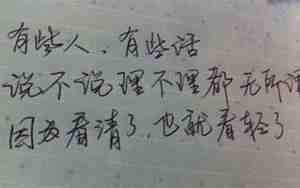 有些人、有些话
说不说理不理都无所谓
因为看清了，也就看轻了